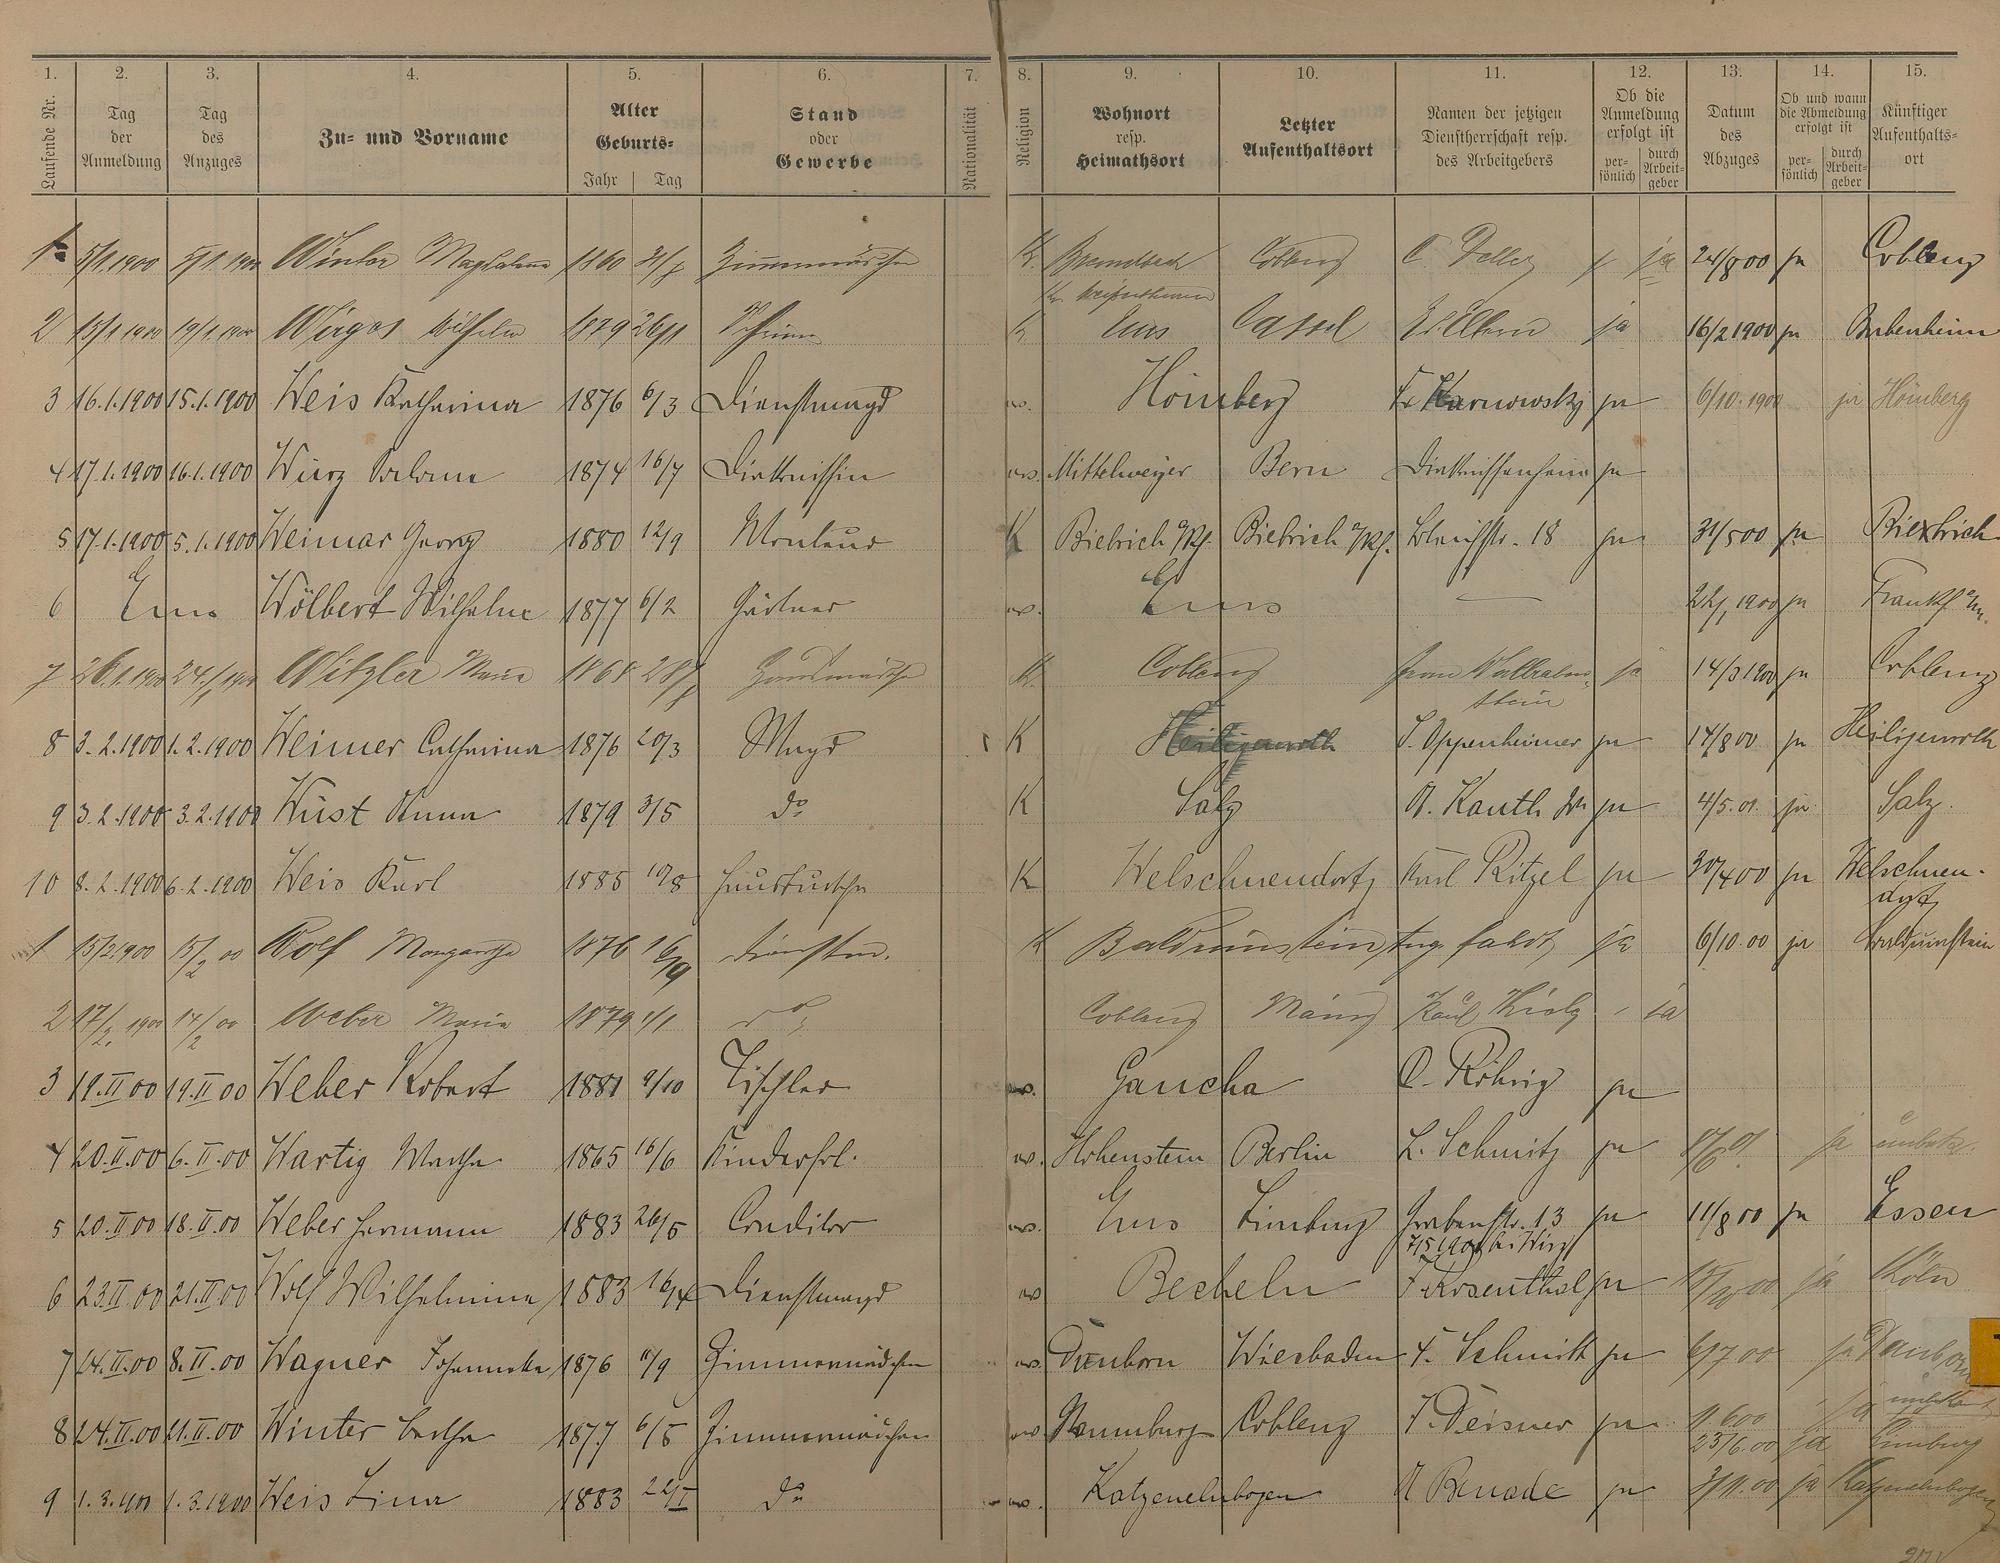 1. 2. 3. 4. 5. 6. 7. 8. 9. 10. 11. 12. 13. 14. 15.
Laufende Nr. Tag der Anmeldung Tag des Anzuges Zu- und Vorname Alter Geburts- Jahr Tag Stand oder Gewerbe Nationalität Religion Wohnort resp. Heimathsort Letzter Aufenthaltsort Namen der jetzigen Dienstherrschaft resp. des Arbeitgebers Ob die Anmeldung erfolgt ist per-sönlich durch Arbeit-geber Datum des Abzuges Ob und wann die Abmeldung erfolgt ist per-sönlich durch Arbeit-geber Künftiger Aufenthalts-ort
1 5/1.1900 5/1.1900 Winter Magdalena 1860 Zimmermädchen K. Coblenz ja 24/8 00 ja Coblenz
2 1900 1900 Wirges Wilhelm 1879 26/1 K Ems Cassel ja 16/2 1900 ja Bubenheim
3 16.1.1900 15.1.1900 Weis Katharina 1876 6/3 Dienstmagd ev. Hömberg Fr Karnowsky ja 6/10.1900 ja Hömberg
4 17.1.1900 16.1.1900 Wurz Salome 1874 16/7 Diakonissin ev. Mittelweyer Bern Diakonissenheim ja
5 17.1.1900 5.1.1900 Weimar Georg 1880 12/9 Monteur K Biebrich a/Rh. Biebrich a/Rh. 18 ja 31/5 00 ja Biebrich
6 Ems Wölbert Wilhelm 1877 6/2 Gärtner ev. Ems — 1900 ja Frankf a/m.
7 26.1.1900 24./1 1900 Witzler Maria 1868 28/ Hausmädchen K. Coblenz Frau Wallraben-
stein ja 14/3 1900 ja Coblenz
8 3.2.1900 1.2.1900 Weimer Catharina 1876 20/3 Magd K Heiligenroth S. Oppenheimer ja 14/8 00 ja Heiligenroth
9 3.2.1900 3.2.1900 Wüst Anna 1879 3/5 do K Salz A. Kauth Ww ja 4/5.01. ja Salz.
10 8.2.1900 6.2.1900 Weis Karl 1885 10/8 Hausbursche K Welschneudorf Karl Ritzel ja 30/4 00 ja Welschneu-
dorf
1 15/2 1900 15/2 00 Wolf Margarethe 1876 16/9 Dienstm. K Balduinstein ja 6/10.00 ja Balduinstein
2 17/2. 1900 17/2 00 Weber Maria 1879 1/1 do Coblenz Mainz Karl ja
3 19.II 00 19.II 00 Weber Robert 1881 9/10 Tischler ev. Gaucha O. Röhrig ja
4 20.II.00 6.II.00 Wartig Martha 1865 16/6 Kinderfrl. ev. Hohenstein Berlin L. Schmitz ja ja unbek.
5 20.II 00 18.II.00 Weber Hermann 1883 26/5 Conditor ev. Ems Limburg Grabenstr. 13 ja 11/8 00 ja Essen
6 23.II 00 21.II 00 Wolf Wilhelmine 1883 16/4 Dienstmagd ev Becheln F Rosenthal ja ja Köln
7 24.II.00 8.II.00 Wagner Johannette 1876 Zimmermädchen ev. Dauborn Wiesbaden F. Schmitt ja 6/7 00 ja Dauborn
8 24.II.00 21.II.00 Winter Bertha 1877 6/5 Zimmermädchen ev Coblenz F. Deisner ja 1.6 00 ja unbekannt
23/6.00 ja Limburg
9 1.3.900 1.3.1900 Weis Lina 1883 22/I do ev. Katzenelnbogen A Benade ja 3/11.00 ja Katzenelnbogen